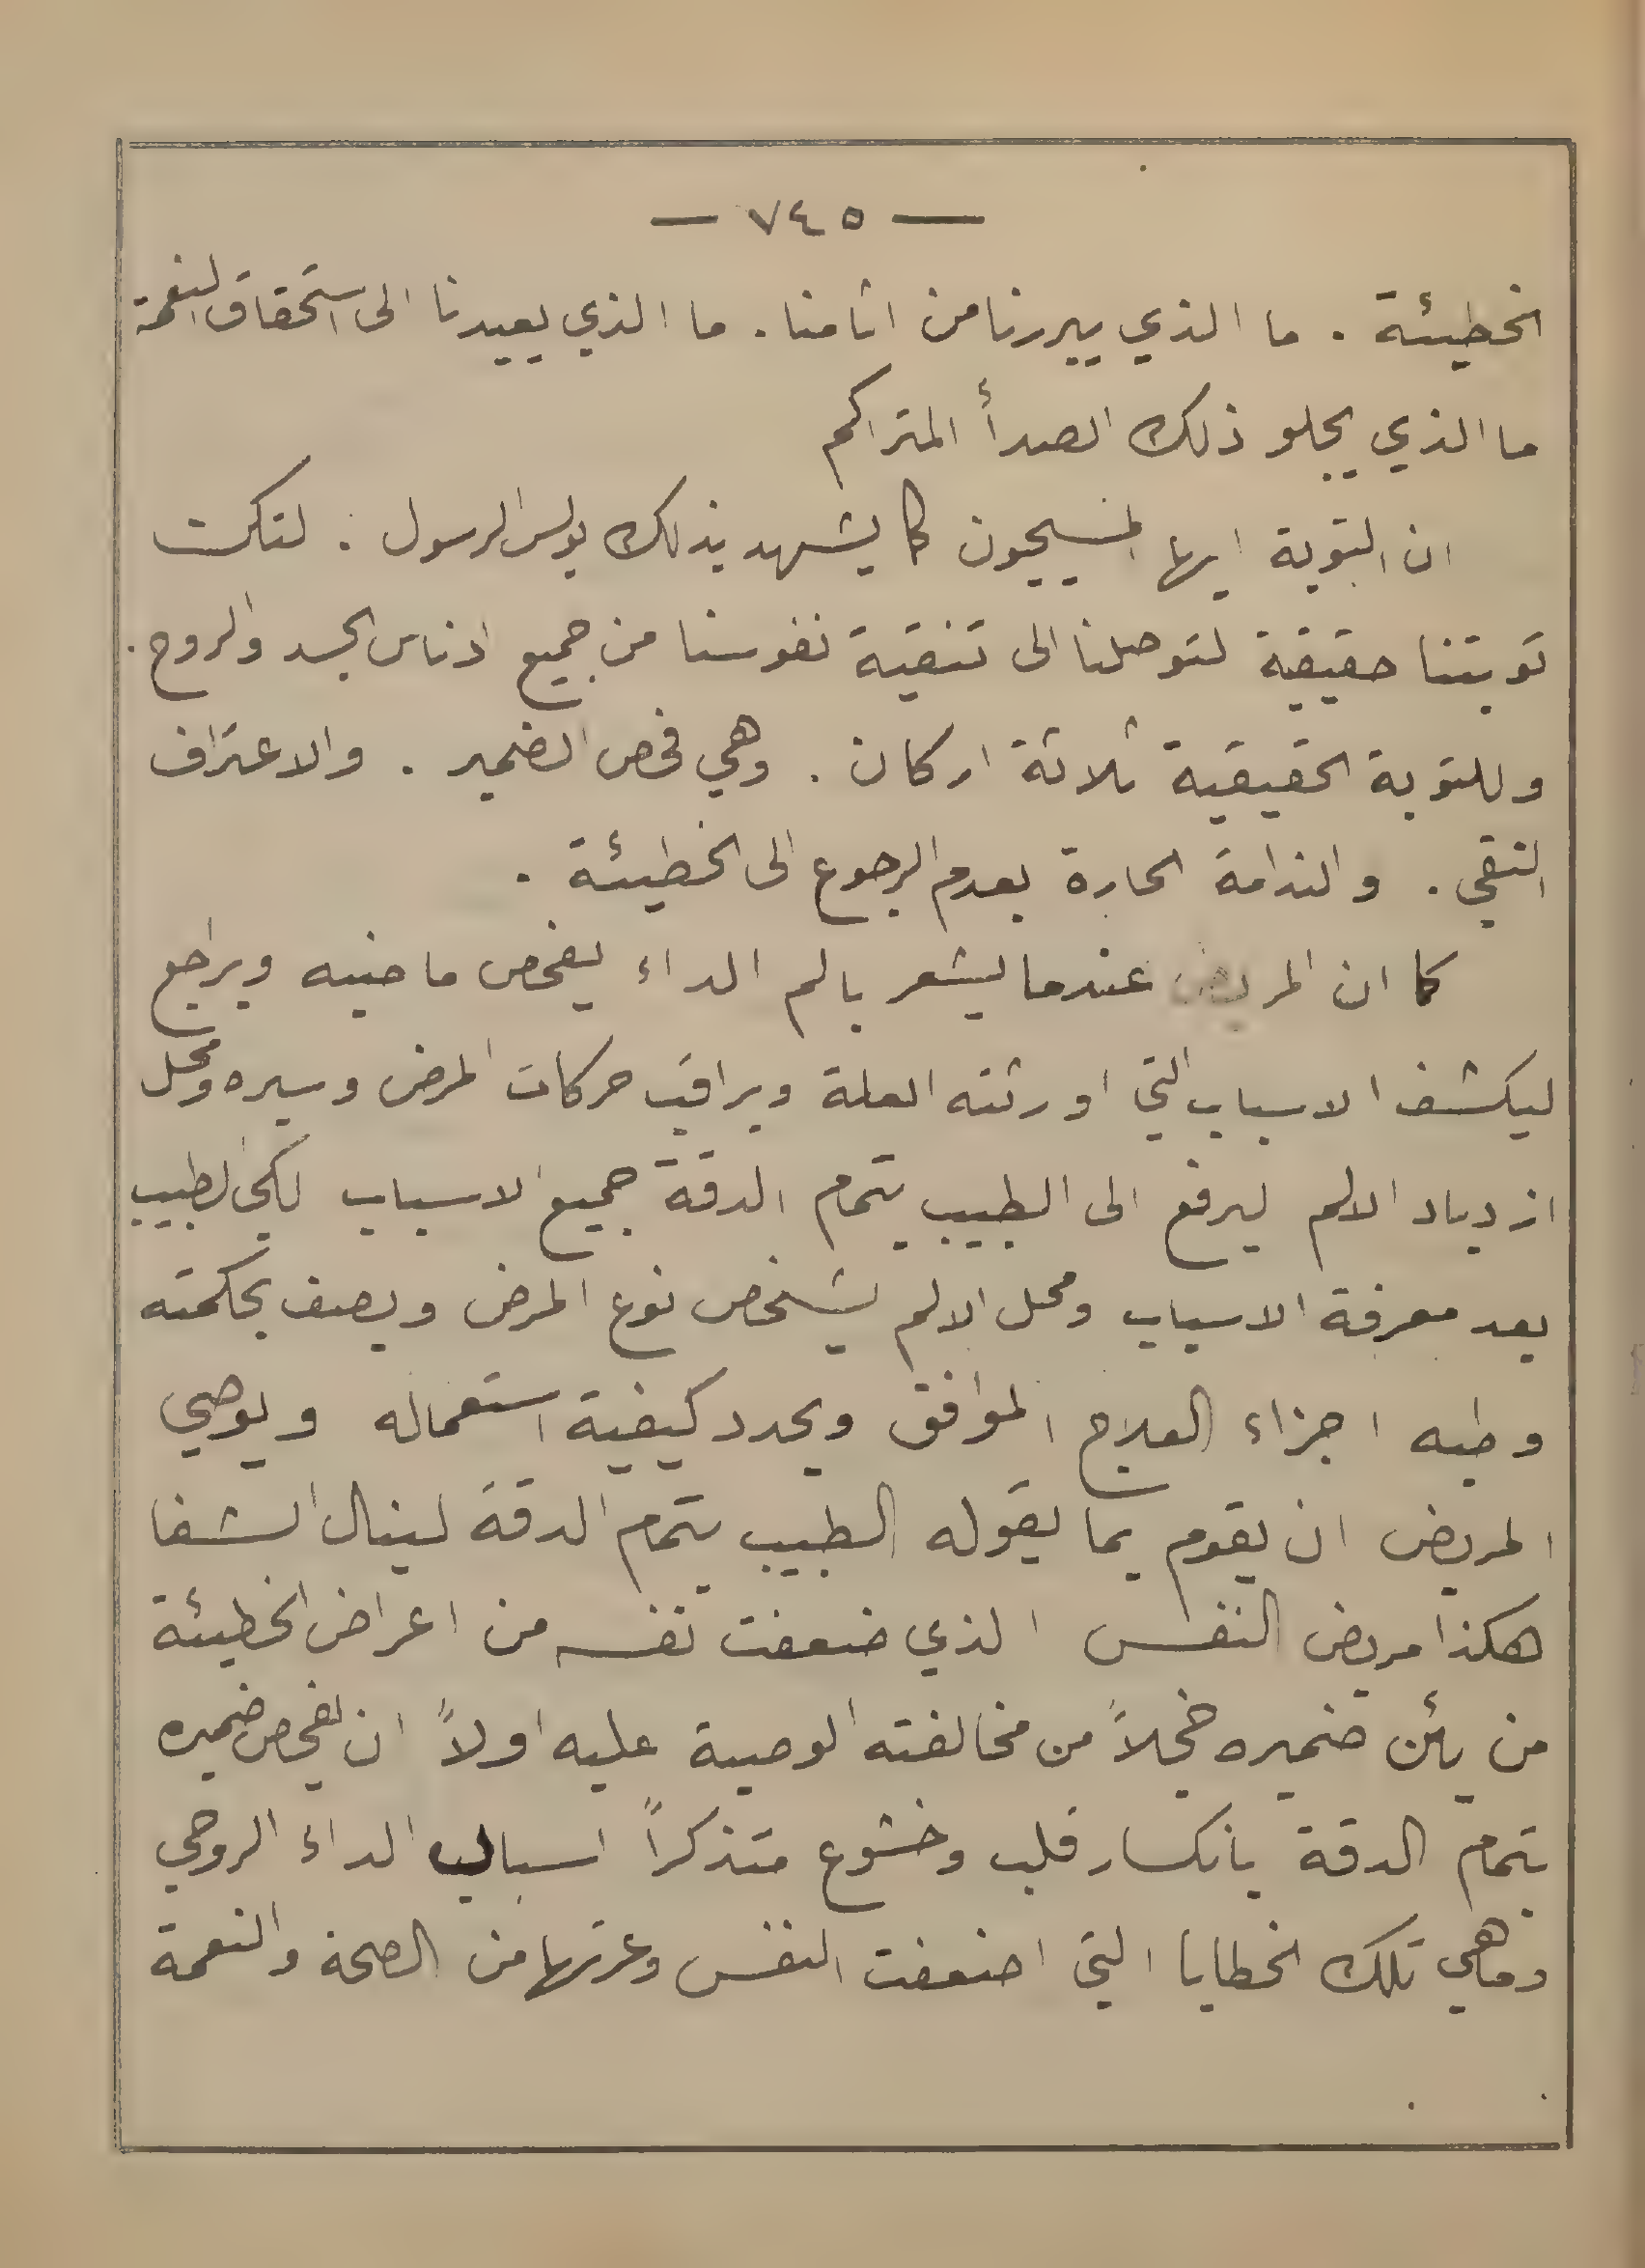 — ٧٤٥ —
الخطيئة . ما الذي يبررنا من اثامنا . ما الذي يعيدنا الى استحقاق النعمة
ما الذي يجلو ذلك الصدأ المتراكم
ان التوبة ايها المسيحيون كما يشهد بذلك بولس الرسول . لتكن
توبتنا حقيقية لتوصلنا الى تنقية نفوسنا من جميع ادناس الجسد والروح .
وللتوبة الحقيقية ثلاثة اركان . وهي فحص الضمير . والاعتراف
النقي . والندامة الحارة بعدم الرجوع الى الخطيئة .
كما ان المريض عندما يشعر بالم الداء يفحص ماضيه ويراجع
ليكشف الاسباب التي اورثته العلة ويراقب حركات المرض وسيره ومحل
ازدياد الالم ليرفع الى الطبيب بتمام الدقة جميع الاسباب لكي الطبيب
بعد معرفة الاسباب ومحل الالم يشخص نوع المرض ويصف بحكمته
وطبه اجزاء العلاج الموافق ويحدد كيفية استعماله ويوصي
المريض ان يقوم بما يقوله الطبيب بتمام الدقة لينال الشفا
هكذا مريض النفس الذي ضعفت نفسه من اعراض الخطيئة
من يئن ضميره خجلاً من مخالفته الوصية عليه اولاً ان يفحص ضميره
بتمام الدقة بانكسار قلب وخشوع متذكراً اسباب الداء الروحي
وماهي تلك الخطايا التي اضعفت النفس وعرتها من الصحة والنعمة